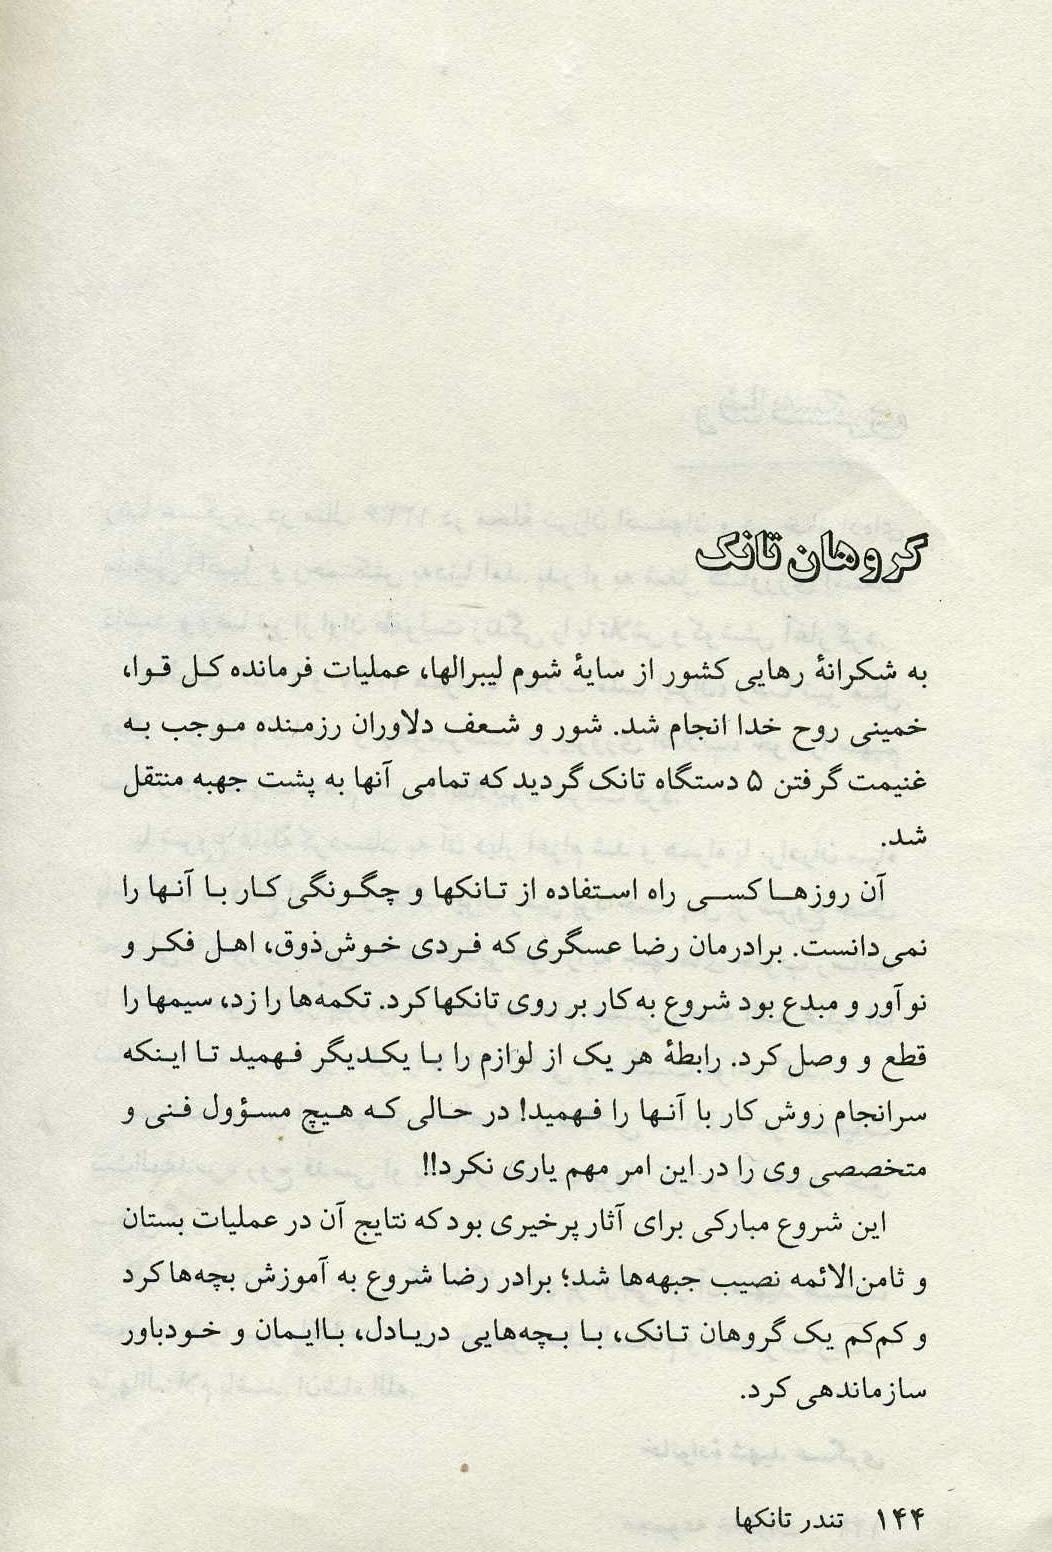 گروهان تانک
به شکرانهٔ رهایی کشور از سایهٔ شوم لیبرالها، عملیات فرمانده کل قوا،
خمینی روح خدا انجام شد. شور و شعف دلاوران رزمنده موجب به
غنیمت گرفتن ۵ دستگاه تانک گردید که تمامی آنها به پشت جبهه منتقل
شد.
آن روزها کسی راه استفاده از تانکها و چگونگی کار با آنها را
نمی‌دانست. برادرمان رضا عسگری که فردی خوش‌ذوق، اهل فکر و
نوآور و مبدع بود شروع به کار بر روی تانکها کرد. تکمه‌ها را زد، سیمها را
قطع و وصل کرد. رابطهٔ هر یک از لوازم را با یکدیگر فهمید تا اینکه
سرانجام روش کار با آنها را فهمید! در حالی که هیچ مسؤول فنی و
متخصصی وی را در این امر مهم یاری نکرد!!
این شروع مبارکی برای آثار پرخیری بود که نتایج آن در عملیات بستان
و ثامن‌الائمه نصیب جبهه‌ها شد؛ برادر رضا شروع به آموزش بچه‌ها کرد
و کم‌کم یک گروهان تانک، با بچه‌هایی دریادل، باایمان و خودباور
سازماندهی کرد.
۱۴۴ تندر تانکها